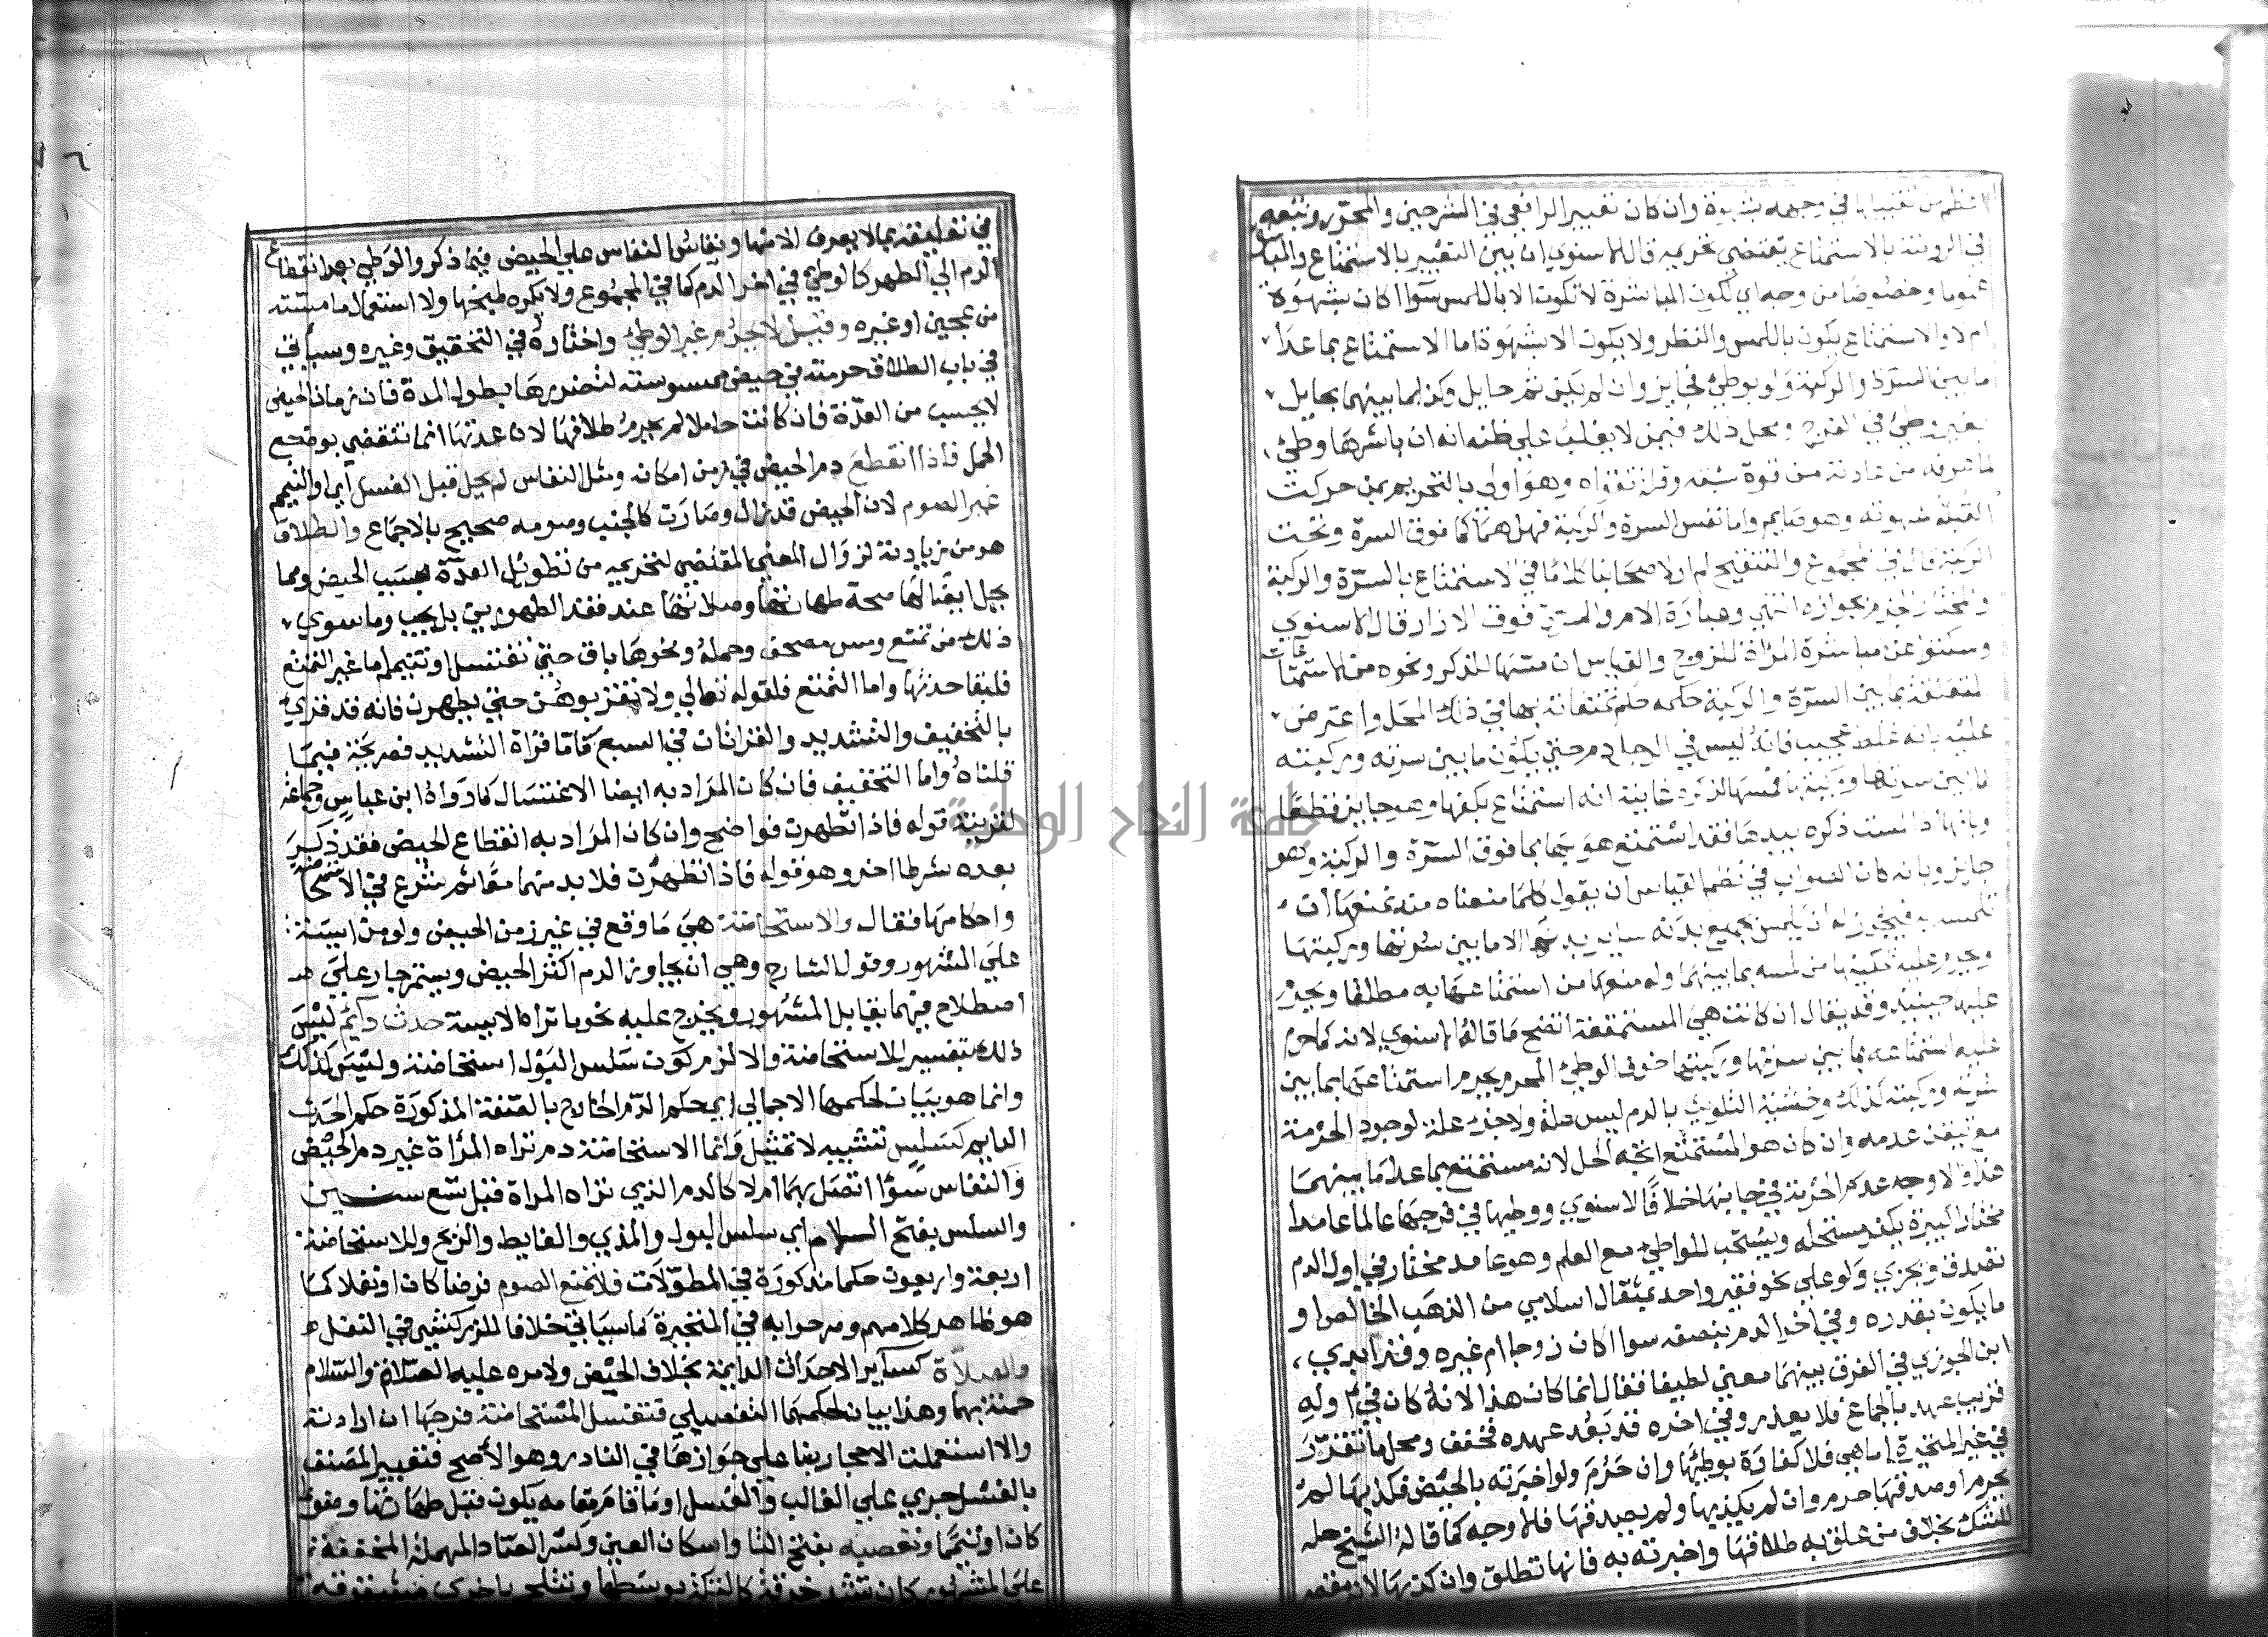 في الروضة بالاستمتاع يقتضي تحريمه قال الاسنوي ان بين التعبير بالاستمتاع والمباشرة
عموما وخصوصا من وجه اي لكون المباشرة لا تكون الا باللمس سوا كان بشهوة
ام لا والاستمتاع يكون باللمس والنظر ولا يكون الا بشهوة اما الاستمتاع بما عدا
ما بين السرة والركبة ولو بوطئ فجايز وان لم يكن ثم حايل وكذا بما بينهما بحايل
بغير وطئ في الفرج ومحل ذلك فيمن لا يغلب على ظنه انه ان باشرها وطئ
لما عرفه من عادته من قوة شبقه وقلة تقواه وهو اولى بالتحريم ممن حركت
القبلة شهوته وهو صايم واما نفس السرة والركبة فهل هما كما فوق السرة وتحت
الركبة قال في المجموع والتنقيح لم ار لاصحابنا كلاما في الاستمتاع بالسرة والركبة
والمختار الجزم بجوازه انتهى وعبارة الام والسنن فوق الازار قال الاسنوي
وسكتوا عن مباشرة المراة للزوج والقياس ان مسها للذكر ونحوه من الاستمتاعات
المتعلقة بما بين السرة والركبة حكمه حكم تمتعاته بها في ذلك المحل واعترض
عليه بانه غلط عجيب فانه ليس في الرجل دم حتى يكون ما بين سرته وركبته
كما بين سرتها وركبتها فمسها لذكره غايته انه استمتاع بكفها وهو جايز قطعا
وبانها اذا لمست ذكره بيدها فقد استمتع هو بها بما فوق السرة والركبة وهو
جايز وبانه كان الصواب في نظم القياس ان يقول كلما منعناه منه نمنعها ان
تلمسه به فيجوز له ان يلمس بجميع بدنه ساير بدنها الا ما بين سرتها وركبتها
ويحرم عليه تمكينها من لمسه بما بينهما وله منعها من استمتاعها به مطلقا ويحرم
عليها حينئذ وقد يقال ان كانت هي المستمتعة اتضح ما قاله الاسنوي لانه كما حرم
عليه استمتاعه بما بين سرتها وركبتها خوف الوطئ المحرم يحرم استمتاعها بما بين
سرته وركبته لذلك وخشية التلويث بالدم ليس علة ولا جزء علة لوجود الحرمة
مع تيقن عدمه وان كان هو المستمتع اتجه الحل لانه مستمتع بما عدا ما بينهما
هذا والاوجه عدم الحرمة في جانبها خلافا للاسنوي ووطيها في فرجها عالما عامدا
مختارا كبيرة يكفر مستحله ويستحب للواطئ مع العلم وهو عامد مختار في اول الدم
تصدق ويجزي ولو على نحو فقير واحد بمثقال اسلامي من الذهب الخالص او
ما يكون بقدره وفي اخر الدم بنصفه سوا كان زوجا ام غيره وقد ابدى
ابن الجوزي في الفرق بينهما معنى لطيفا فقال انما كان هذا لانه كان في اوله
قريب عهد بالجماع فلا يعذر وفي اخره قد بعد عهده فخفف ومحل ما تقرر
في غير المتحيرة اما هي فلا كفارة بوطئها وان حرم ولو اخبرته بالحيض فكذبها لم
يحرم او صدقها حرم وان لم يكذبها ولم يصدقها فالاوجه كما قاله الشيخ حله
للشك بخلاف من علق به طلاقها واخبرته به فانها تطلق وان كذبها لانه مقصر
في تعليقه بما لا يعرف الا منها ويقاس النفاس على الحيض فيما ذكر والوطئ بعد انقطاع
الدم الى الطهر كالوطئ في اخر الدم كما في المجموع ولا يكره طبخها ولا استعمال ما مسته
من عجين او غيره وقيل لا يحرم غير الوطئ واختاره في التحقيق وغيره وسياتي
في باب الطلاق حرمته في حيض ممسوسته لتضررها بطول المدة فان زمان الحيض
لا يحسب من العدة فان كانت حاملا لم يحرم طلاقها لان عدتها انما تنقضي بوضع
الحمل فاذا انقطع دم الحيض في زمن امكانه ومثله النفاس لم يحل قبل الغسل اي او التيمم
غير الصوم لان الحيض قد زال وصارت كالجنب وصومه صحيح بالاجماع والطلاق
هو من زيادته لزوال المعنى المقتضي لتحريمه من تطويل العدة بسبب الحيض ومما
يحل ايضا لها صحة طهارتها وصلاتها عند فقد الطهورين بل يجب وما سوى
ذلك من تمتع ومس مصحف وحمله ونحوها باق حتى تغتسل او تتيمم اما غير التمتع
فلبقا حدثها واما التمتع فلقوله تعالى ولا تقربوهن حتى يطهرن فانه قد قرئ
بالتخفيف والتشديد والقرانان في السبع فاما قراة التشديد فصريحة فيما
قلناه واما التخفيف فان كان المراد به ايضا الاغتسال كما رواه ابن عباس وجماعة
لقرينة قوله فاذا تطهرن فواضح وان كان المراد به انقطاع الحيض فقد ذكر
بعده شرطا اخر وهو قوله فاذا تطهرن فلا بد منهما معا ثم شرع في الاستحاضة
واحكامها فقال والاستحاضة هي ما وقع في غير زمن الحيض ولو من ايسة
على المشهور وقول الشارح وهي ان يجاوز الدم اكثر الحيض ويستمر جار على
اصطلاح فيهما يقابل المشهور ويخرج عليه نحو ما تراه الايسة حدث دايم ليس
ذلك تفسير للاستحاضة والا لزم كون سلس البول استحاضة وليس كذلك
وانما هو بيان لحكمها الاجمالي اي حكم الدم الخارج بالصفة المذكورة حكم الحدث
الدايم كسلس تشبيه لا تمثيل وانما الاستحاضة دم تراه المراة غير دم الحيض
والنفاس سوا اتصل بهما ام لا كالدم الذي تراه المراة قبل تسع سنين
والسلس بفتح اللام اي سلس البول والمذي والغايط والريح وللاستحاضة
اربعة واربعون حكما مذكورة في المطولات فلا تمنع الصوم فرضا كان او نفلا كما
هو ظاهر كلامهم وصرحوا به في المتحيرة كما سياتي خلافا للزركشي في النفل
والصلاة كساير الاحداث الدايمة بخلاف الحيض ولامره عليه الصلاة والسلام
حمنة بهما وهذا بيان لحكمها التفصيلي فتغسل المستحاضة فرجها ان ارادته
والا استعملت الاحجار بنا على جوازها في النادر وهو الاصح فتعبير المصنف
بالغسل جري على الغالب والغسل او ما قام مقامه يكون قبل طهارتها وضوا
كان او تيمما وتعصبه بفتح التا واسكان العين وكسر الصاد المهملة المخففة
على المشهور كان تشد خرقة كالتكة بوسطها وتتلجم باخرى مشقوقة